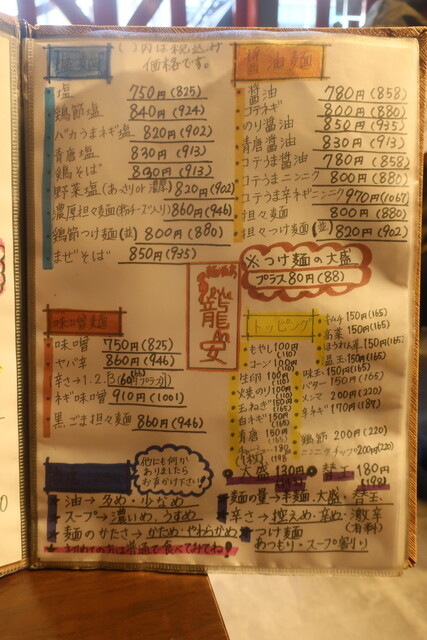 ( )内は税込み
価格です。
塩麺
塩 750円(825)
鶏節塩 840円(924)
バカうまネギ塩 820円(902)
青唐塩 830円(913)
鶏そば 830円(913)
野菜塩(あっさりor濃厚) 820円(902)
濃厚担々麺(粉チーズ入り) 860円(946)
鶏節つけ麺(並) 800円(880)
まぜそば 850円(935)
醤油麺
醤油 780円(858)
コテネギ 800円(880)
のり醤油 850円(935)
青唐醤油 830円(913)
コテうま醤油 780円(858)
コテうまニンニク 800円(880)
コテうま辛ネギニンニク 970円(1067)
担々麺 800円(880)
担々つけ麺(並) 820円(902)
※つけ麺の大盛
プラス80円(88)
龍安
味噌麺
味噌 750円(825)
ヤバ辛 860円(946)
辛さ→1.2.3(60円プラス)(66)
ネギ味噌 910円(1001)
黒ごま担々麺 860円(946)
トッピング
もやし 100円(110)
コーン 100円(110)
生卵 100円(110)
焼のり 100円(110)
玉ねぎ 150円(165)
白ネギ 150円(165)
青唐 150円(165)
キムチ 150円(165)
高菜 150円(165)
ほうれん草 150円(165)
温玉 150円(165)
味玉 150円(165)
バター 150円(165)
メンマ 200円(220)
辛ネギ 170円(187)
鶏節 200円(220)
ニンニクチップ 200円(220)
大盛 130円
替玉 180円(198)
他にも何か
ありましたら
お声かけ下さい!
油→多め・少なめ
スープ→濃いめ、うすめ
麺のかたさ→かため・やわらかめ
初めての方は普通で食べてみてね!
麺の量→半麺・大盛・替玉
辛さ→控えめ・辛め・激辛(有料)
つけ麺
あつもり・スープ割り